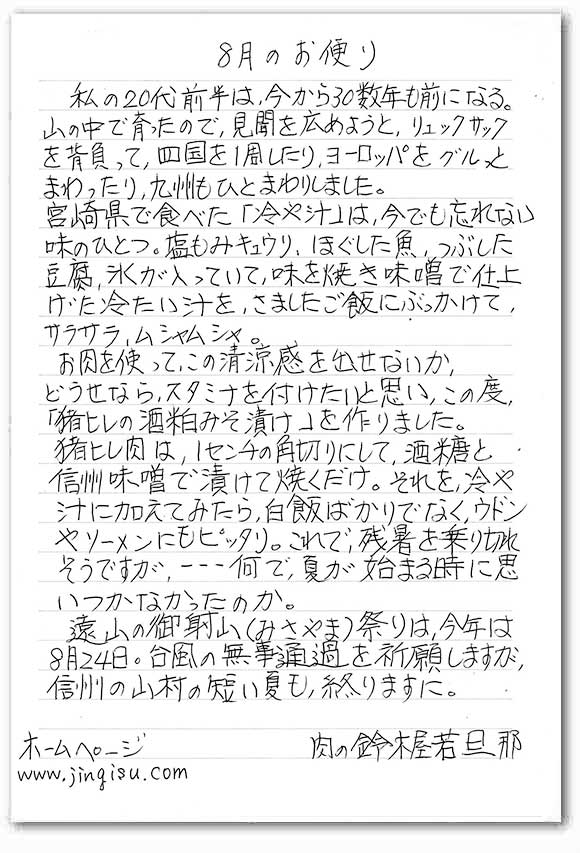 8月のお便り
私の20代前半は,今から30数年も前になる。
山の中で育ったので,見聞を広めようと,リュックサック
を背負って,四国を1周したり,ヨーロッパをグルっと
まわったり,九州もひとまわりしました。
宮崎県で食べた「冷や汁」は,今でも忘れない
味のひとつ。塩もみキュウリ,ほぐした魚,つぶした
豆腐,氷が入っていて,味を焼き味噌で仕上
げた冷たい汁を,さましたご飯にぶっかけて,
サラサラ,ムシャムシャ。
お肉を使って,この清涼感を出せないか,
どうせなら,スタミナを付けたいと思い,この度,
「猪ヒレの酒粕みそ漬け」を作りました。
猪ヒレ肉は,1センチの角切りにして,酒糖と
信州味噌で漬けて焼くだけ。それを,冷や
汁に加えてみたら,白飯ばかりでなく,ウドン
やソーメンにもピッタリ。これで,残暑を乗り切れ
そうですが,---何で,夏が始まる時に思
いつかなかったのか。
遠山の御射山(みさやま)祭りは,今年は
8月24日。台風の無事通過を祈願しますが,
信州の山村の短い夏も,終りますに。
ホームページ 肉の鈴木屋若旦那
www.jingisu.com